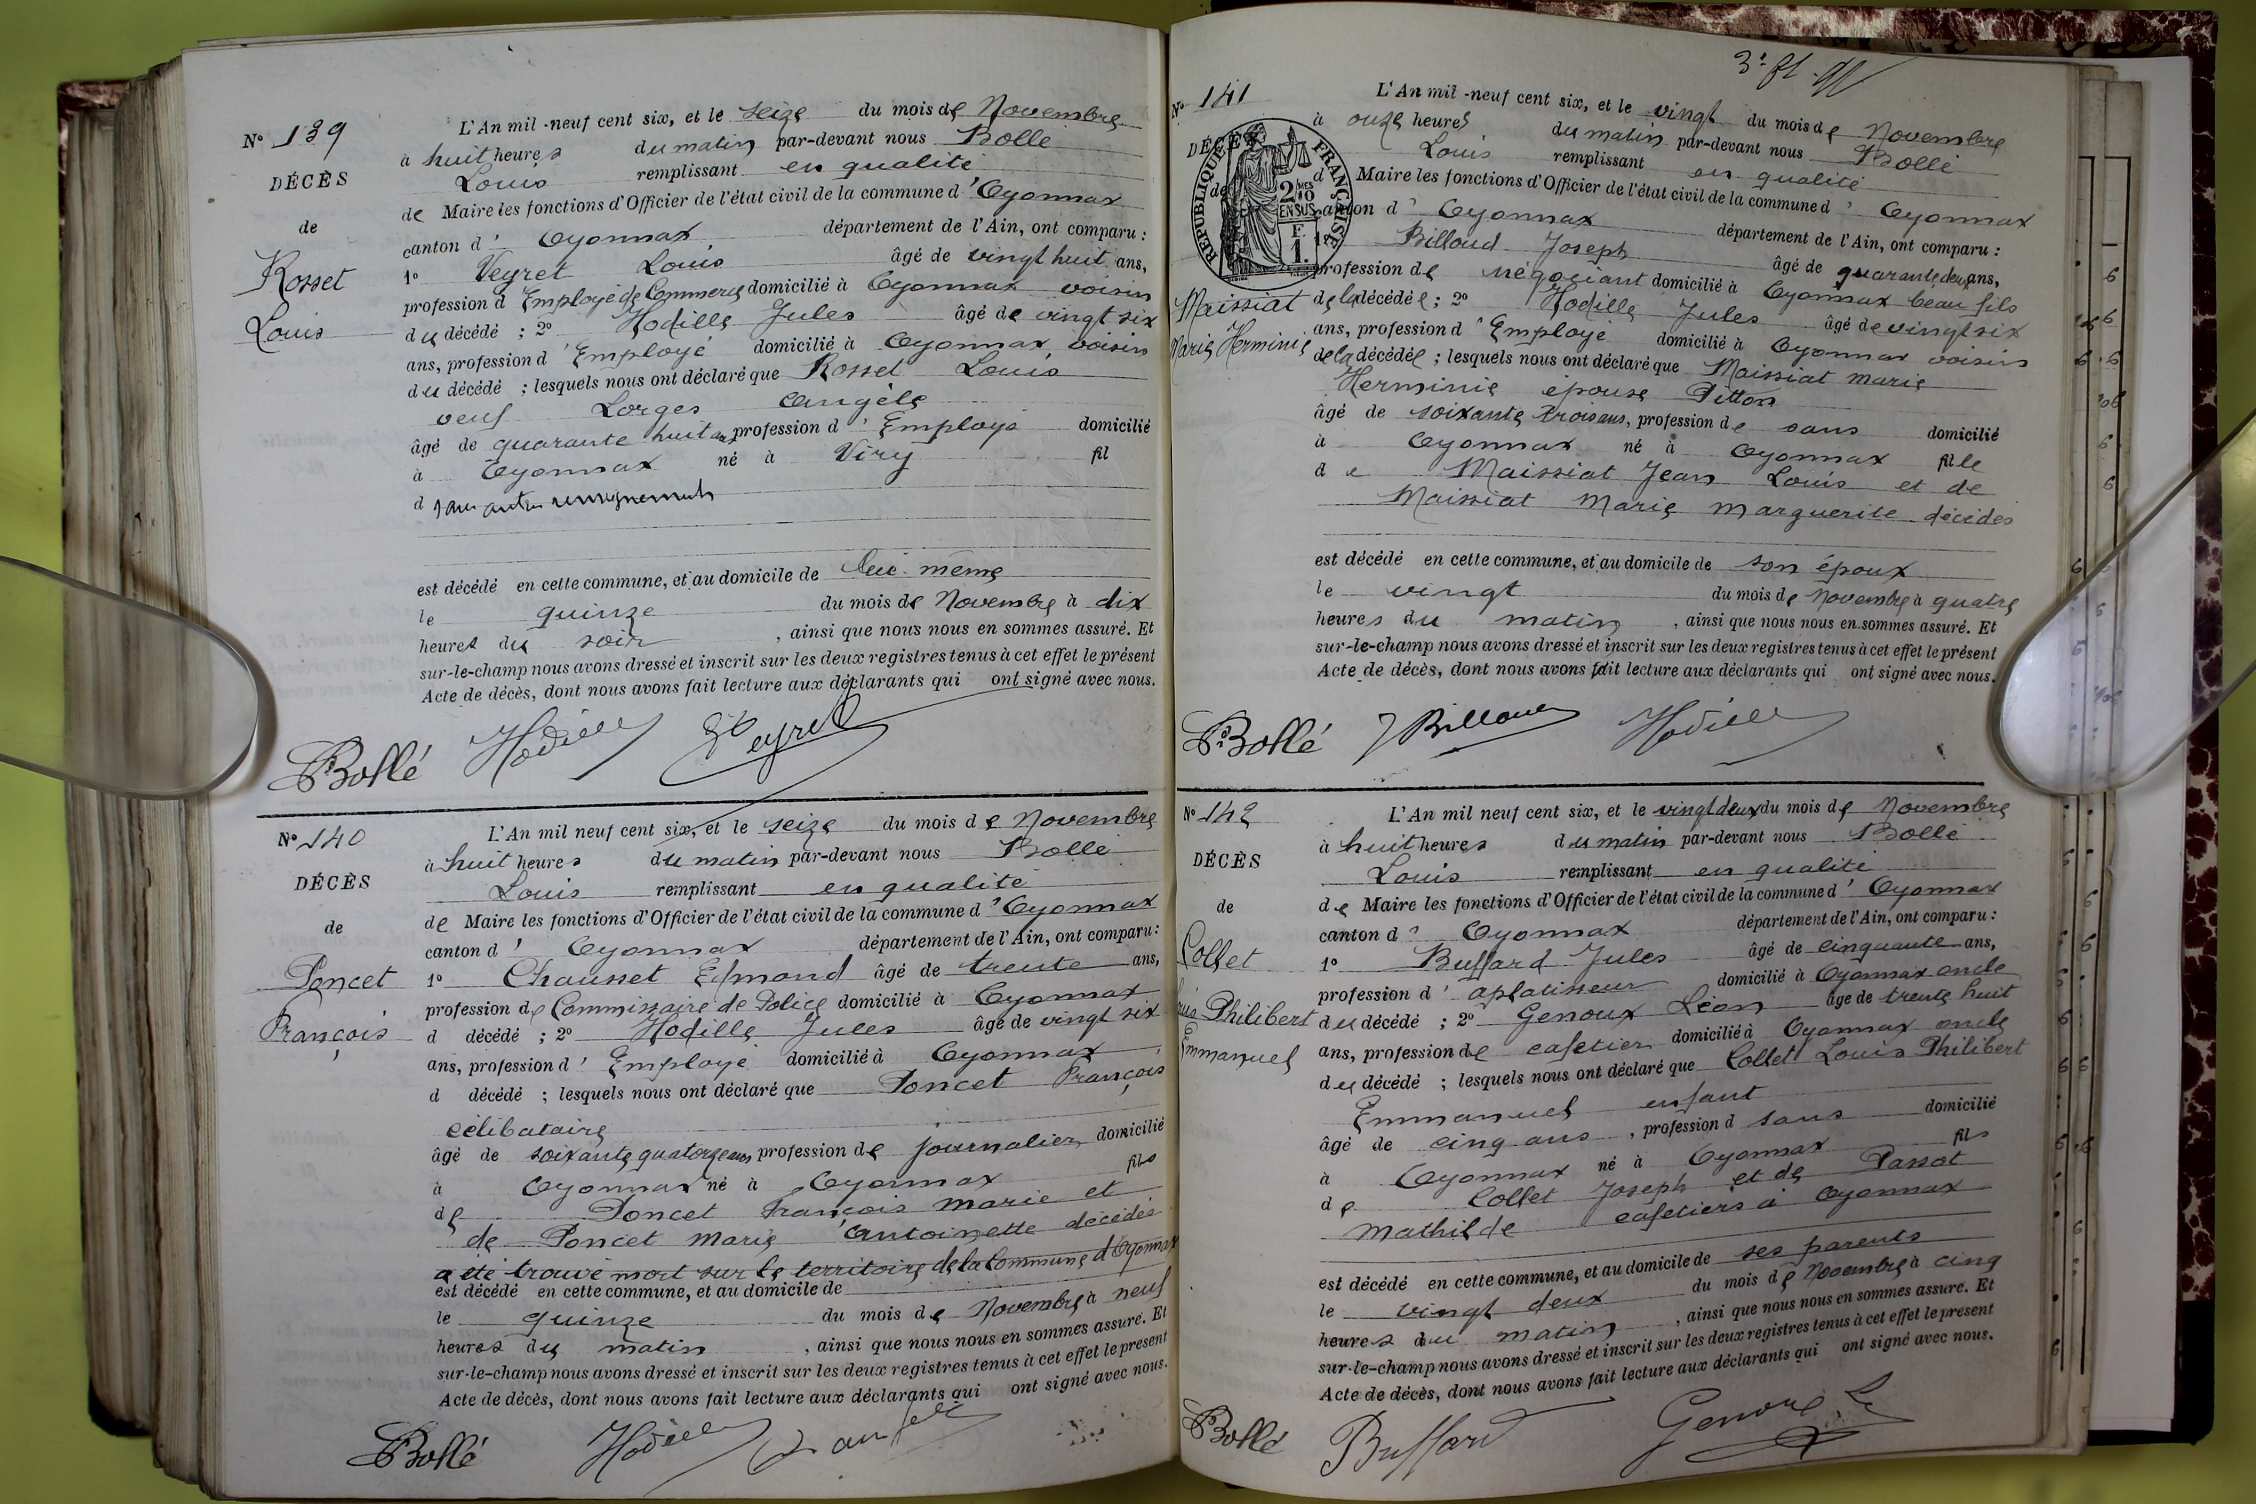 N° 139
DÉCÈS
de
Rosset
Louis
L'An mil-neuf cent six, et le seize du mois de Novembre
à huit heures du matin par-devant nous Bollé
Louis remplissant en qualité
de Maire les fonctions d'Officier de l'état civil de la commune d'Oyonnax
canton d'Oyonnax département de l'Ain, ont comparu :
1° Veyret Louis âgé de vingt huit ans,
profession d'Employé de Commerce domicilié à Oyonnax voisin
du décédé ; 2° Hodille Jules âgé de vingt six
ans, profession d'Employé domicilié à Oyonnax voisin
du décédé ; lesquels nous ont déclaré que Rosset Louis
veuf Lorges Angèle
âgé de quarante huit ans profession d'Employé domicilié
à Oyonnax né à Viry fil
d sans autres renseignements
est décédé en cette commune, et au domicile de lui-même
le quinze du mois de Novembre à dix
heures du soir , ainsi que nous nous en sommes assuré. Et
sur-le-champ nous avons dressé et inscrit sur les deux registres tenus à cet effet le présent
Acte de décès, dont nous avons fait lecture aux déclarants qui ont signé avec nous.
Bollé Hodille Veyret
N° 140
DÉCÈS
de
Poncet
François
L'An mil neuf cent six, et le seize du mois de Novembre
à huit heures du matin par-devant nous Bollé
Louis remplissant en qualité
de Maire les fonctions d'Officier de l'état civil de la commune d'Oyonnax
canton d'Oyonnax département de l'Ain, ont comparu :
1° Chausset Edmond âgé de trente ans,
profession de Commissaire de Police domicilié à Oyonnax
d décédé ; 2° Hodille Jules âgé de vingt six
ans, profession d'Employé domicilié à Oyonnax
d décédé ; lesquels nous ont déclaré que Poncet François
célibataire
âgé de soixante quatorze ans profession de journalier domicilié
à Oyonnax né à Oyonnax fils
de Poncet François Marie et
de Poncet Marie Antoinette décédés
a été trouvé mort sur le territoire de la Commune d'Oyonnax
est décédé en cette commune, et au domicile de
le quinze du mois de Novembre à neuf
heures du matin , ainsi que nous nous en sommes assuré. Et
sur-le-champ nous avons dressé et inscrit sur les deux registres tenus à cet effet le présent
Acte de décès, dont nous avons fait lecture aux déclarants qui ont signé avec nous.
Bollé Hodille
N° 141
DÉCÈS
de
Maissiat
Marie Herminie
RÉPUBLIQUE FRANÇAISE
2/10 MES
EN SUS
F.
1.
L'An mil-neuf cent six, et le vingt du mois de Novembre
à onze heures du matin par-devant nous Bollé
Louis remplissant en qualité
d Maire les fonctions d'Officier de l'état civil de la commune d'Oyonnax
canton d'Oyonnax département de l'Ain, ont comparu :
1° Billoud Joseph âgé de quarante deux ans,
profession de négociant domicilié à Oyonnax beau fils
de la décédée ; 2° Hodille Jules âgé de vingt six
ans, profession d'Employé domicilié à Oyonnax voisin
de la décédée ; lesquels nous ont déclaré que Maissiat Marie
Herminie épouse Pitton
âgé de soixante trois ans, profession de sans domicilié
à Oyonnax né à Oyonnax fille
de Maissiat Jean Louis et de
Maissiat Marie Marguerite décédés
est décédé en cette commune, et au domicile de son époux
le vingt du mois de Novembre à quatre
heures du matin , ainsi que nous nous en sommes assuré. Et
sur-le-champ nous avons dressé et inscrit sur les deux registres tenus à cet effet le présent
Acte de décès, dont nous avons fait lecture aux déclarants qui ont signé avec nous.
Bollé J Billoud Hodille
N° 142
DÉCÈS
de
Collet
Louis Philibert
Emmanuel
L'An mil neuf cent six, et le vingt deux du mois de Novembre
à huit heures du matin par-devant nous Bollé
Louis remplissant en qualité
de Maire les fonctions d'Officier de l'état civil de la commune d'Oyonnax
canton d'Oyonnax département de l'Ain, ont comparu :
1° Buffard Jules âgé de cinquante ans,
profession d'aplatisseur domicilié à Oyonnax oncle
du décédé ; 2° Genoux Léon âgé de trente huit
ans, profession de cafetier domicilié à Oyonnax oncle
du décédé ; lesquels nous ont déclaré que Collet Louis Philibert
Emmanuel enfant
âgé de cinq ans , profession d sans domicilié
à Oyonnax né à Oyonnax fils
de Collet Joseph et de Passot
Mathilde cafetiers à Oyonnax
est décédé en cette commune, et au domicile de ses parents
le vingt deux du mois de Novembre à cinq
heures du matin , ainsi que nous nous en sommes assuré. Et
sur-le-champ nous avons dressé et inscrit sur les deux registres tenus à cet effet le présent
Acte de décès, dont nous avons fait lecture aux déclarants qui ont signé avec nous.
Bollé Buffard Genoux L